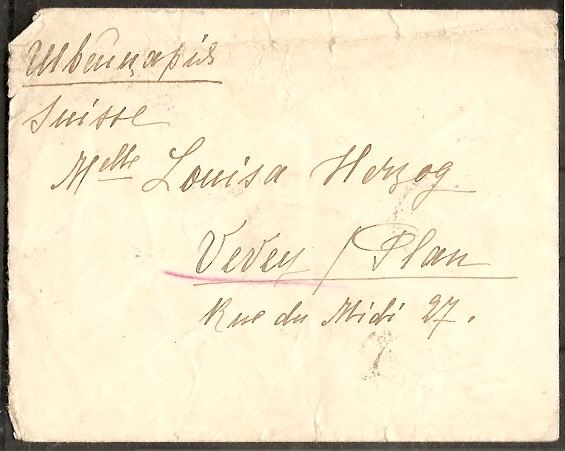 Швейцарія
Suisse
Melle Louisa Herzog
Vevey / Plan
Rue du Midi 27.